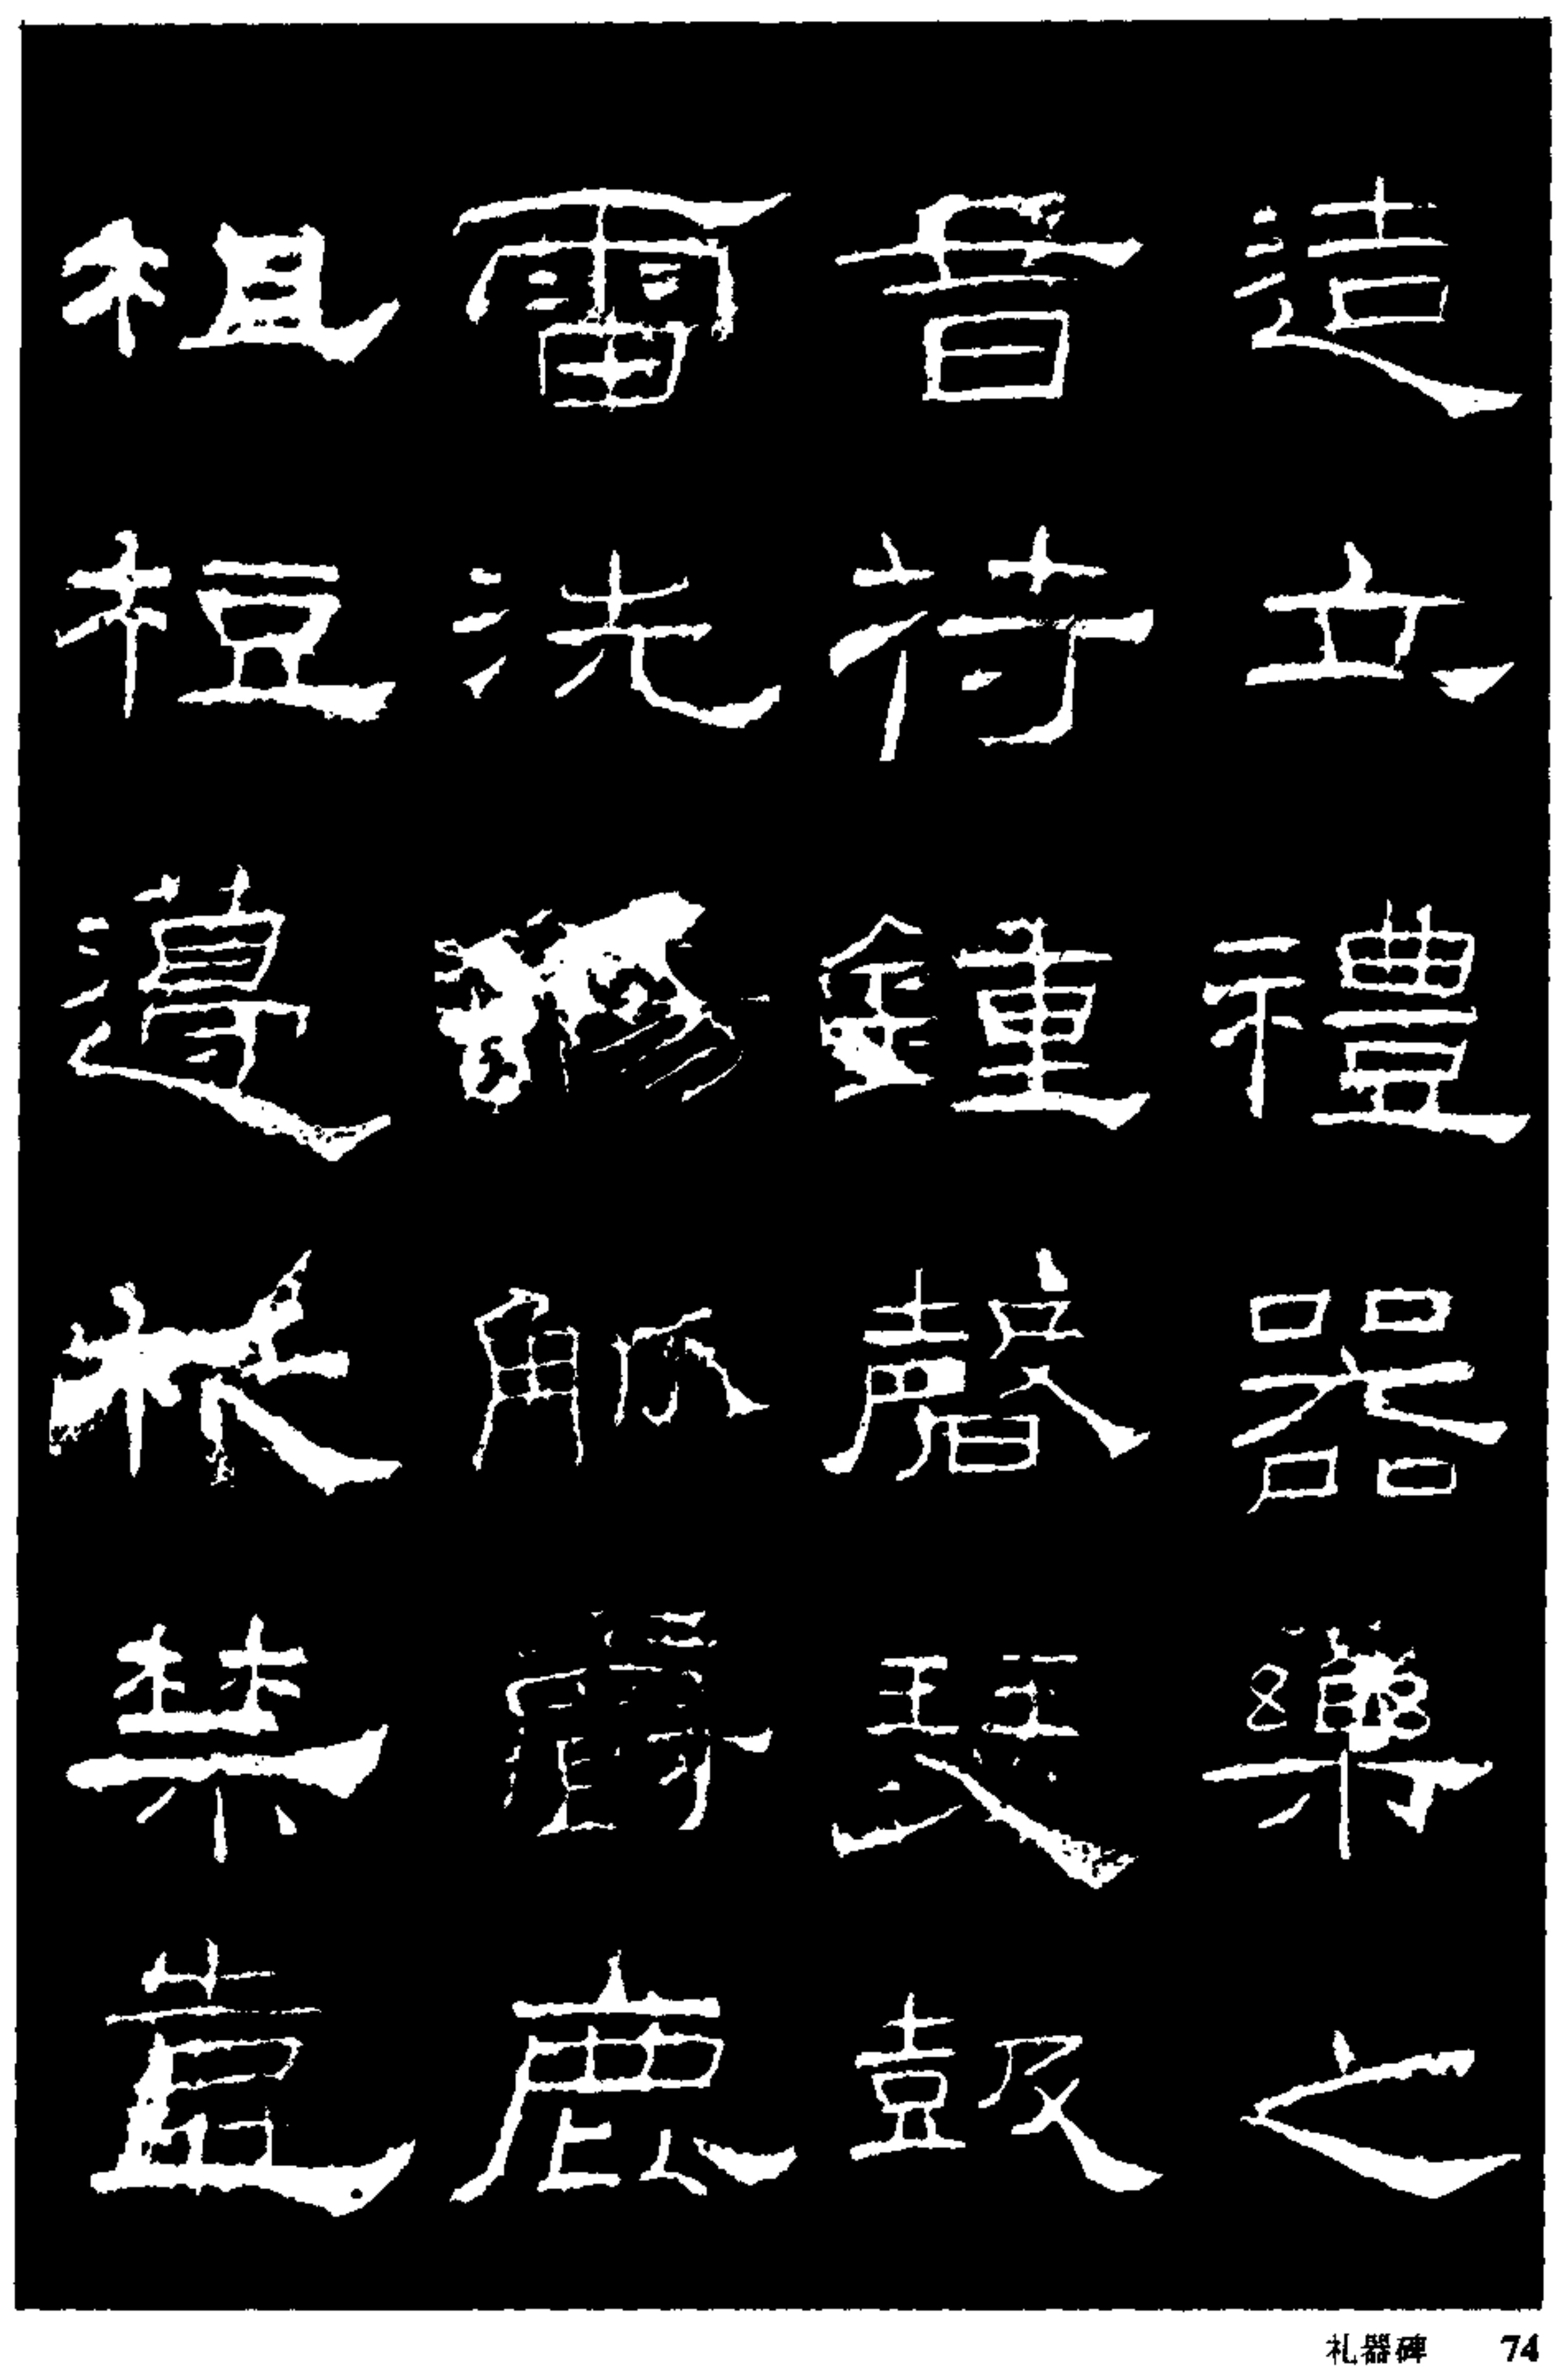 造立禮器樂之
音符鍾磬瑟鼓
雷洗觴觚爵鹿
柤梪籩柉禁壺
礼器碑 74